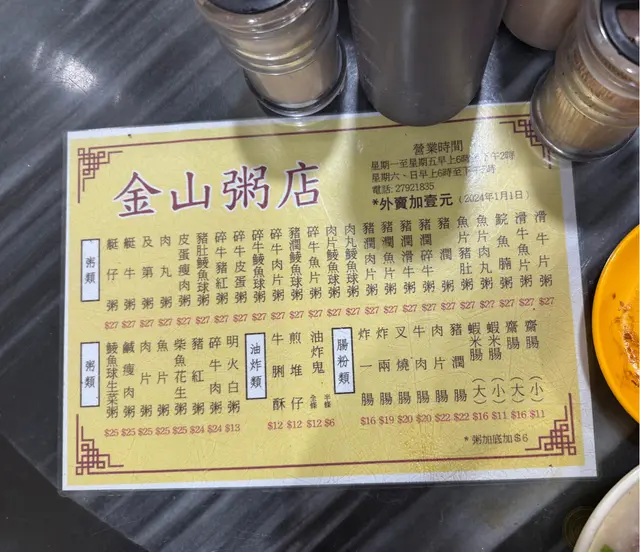 金山粥店
營業時間
星期一至星期五早上6時至下午2時
星期六、日早上6時至下午
電話: 27921835
*外賣加壹元 (2024年1月1日)
粥類
艇仔粥 $27
艇牛粥 $27
及第粥 $27
肉丸粥 $27
皮蛋瘦肉粥 $27
豬肚鯪魚球粥 $27
碎牛豬紅粥 $27
碎牛皮蛋粥 $27
碎牛鯪魚球粥 $27
碎牛肉片粥 $27
豬潤鯪魚球粥 $27
碎牛魚片粥 $27
肉片鯪魚球粥 $27
肉丸鯪魚球粥 $27
豬潤肉片粥 $27
豬潤魚片粥 $27
豬潤滑牛粥 $27
豬潤碎牛粥 $27
豬潤粥 $27
魚片豬肚粥 $27
魚片肉丸粥 $27
鯇魚腩粥 $27
滑牛魚片粥 $27
滑牛粥 $27
粥類
鯪魚球生菜粥 $25
鹹瘦肉粥 $25
肉片粥 $25
魚片粥 $25
柴魚花生粥 $25
豬紅粥 $24
碎牛肉粥 $24
明火白粥 $13
油炸類
牛脷酥 $12
煎堆仔 $12
油炸鬼 全條 $12 半條 $6
腸粉類
炸一腸 $16
炸兩腸 $19
叉燒腸 $20
牛肉腸 $20
肉片腸 $22
豬潤腸 $22
蝦米腸(大) $16
蝦米腸(小) $11
齋腸(大) $16
齋腸(小) $11
*粥加底加$6